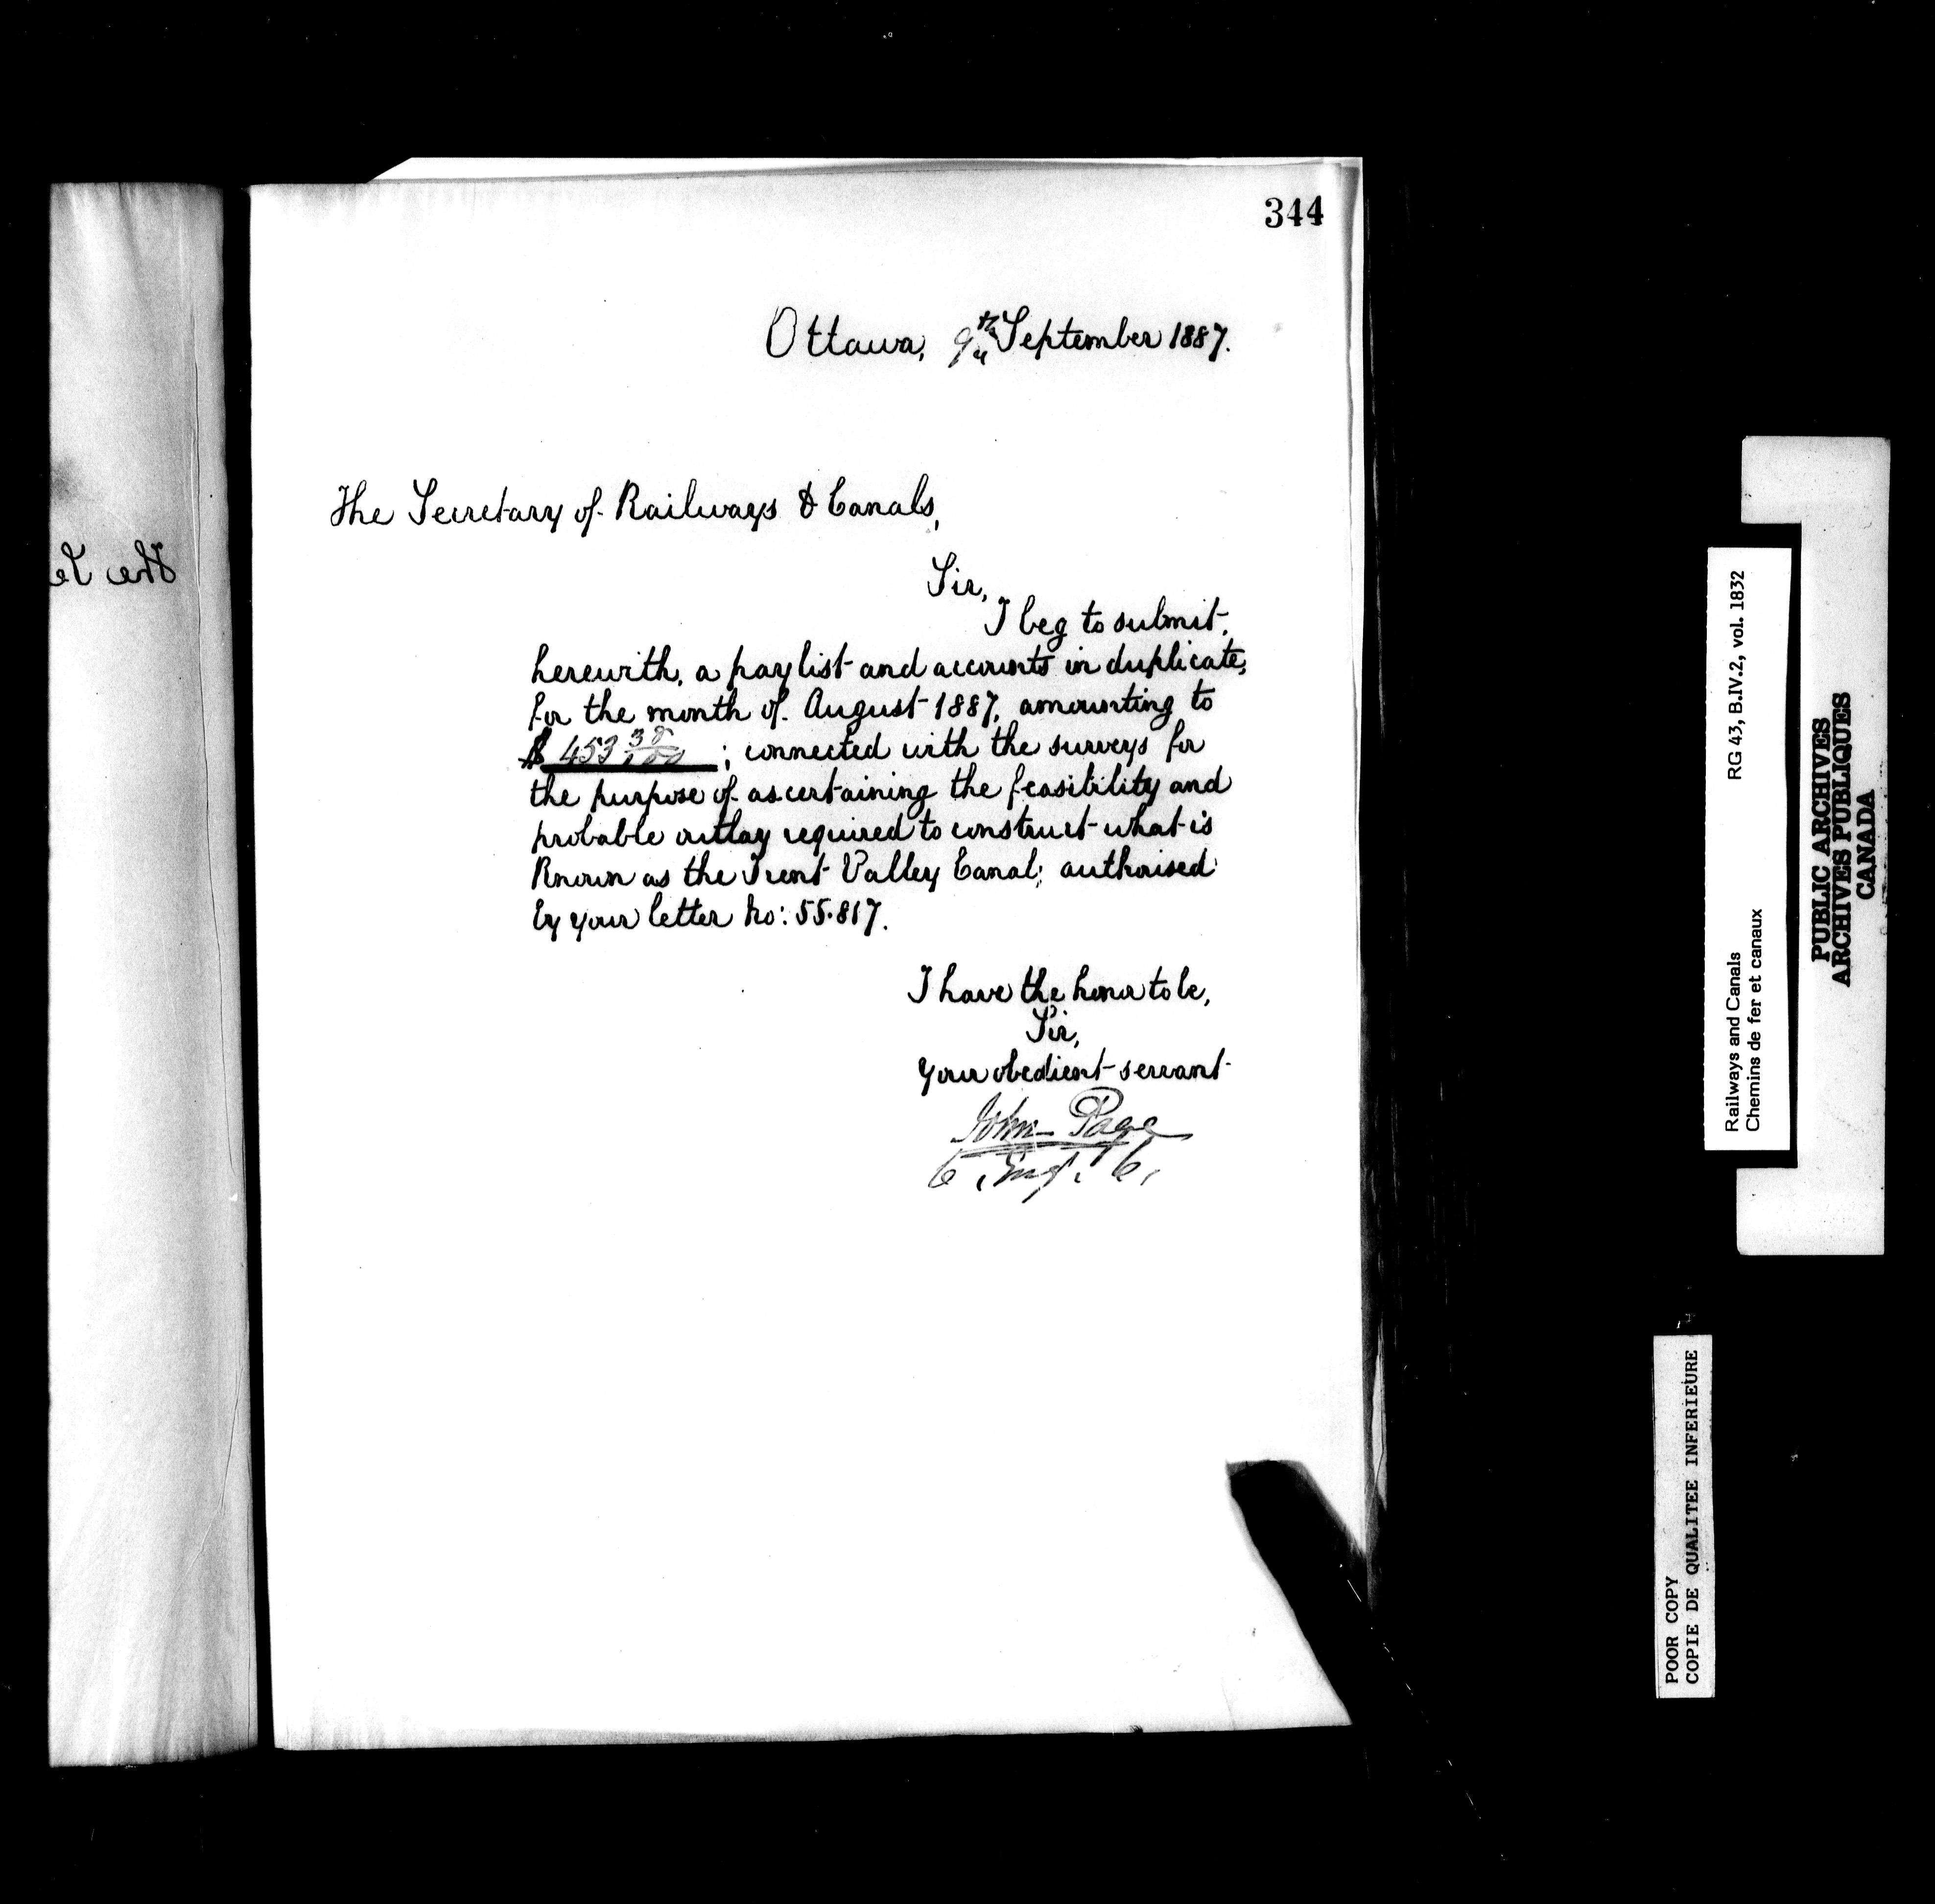 344
Ottawa, 9th September 1887.
The Secretary of Railways & Canals,
Sir,
I beg to submit,
herewith, a pay list and accounts in duplicate,
for the month of August 1887, amounting to
$ 453 38/100 ; connected with the surveys for
the purpose of ascertaining the feasibility and
probable outlay required to construct what is
Known as the Trent Valley Canal; authorised
by your letter No: 55.817.
I have the honor to be,
Sir,
Your obedient servant
John Page
C. Eng. C.
The Se
Railways and Canals RG 43, B.IV.2, vol. 1832
Chemins de fer et canaux
PUBLIC ARCHIVES
ARCHIVES PUBLIQUES
CANADA
POOR COPY
COPIE DE QUALITEE INFERIEURE